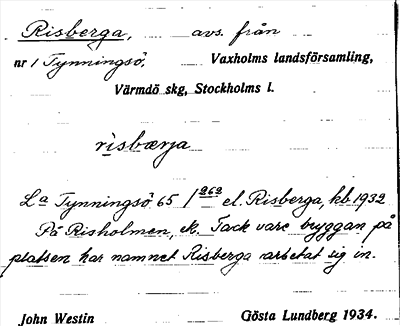 Risberga, avs. från
nr 1 Tynningsö, Vaxholms landsförsamling,
Värmdö skg, Stockholms l.
risbærja
La Tynningsö 65 / el. Risberga, kb. 1932
På Risholmen, ek. Tack vare bryggan på
platsen har namnet Risberga arbetat sig in.
John Westin Gösta Lundberg 1934.